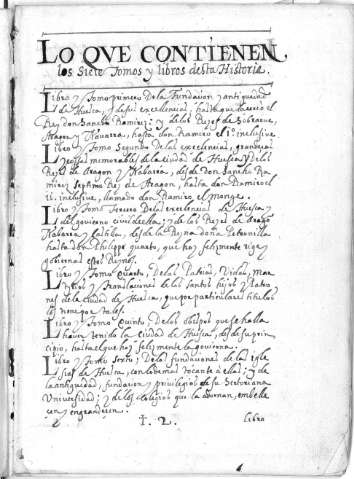 LO QVE CONTIENEN
los Siete Tomos y libros desta Historia.
Libro y Tomo primero De la Fundacion y antiguedad
de Huesca, y de sus excelencias, hasta que nacio el
Rey don Sancho Ramirez: y de los Reyes de Sobrarue,
Aragon y Nauarra, hasta don Ramiro el 1º. inclusiue
Libro y Tomo Segundo De las excelencias, grandezas
y cosas memorables de la ciudad de Huesca, y de los
Reyes de Aragon y Nabarra, desde Don Sancho Ra
mirez Septimo Rey de Aragon, hasta don Ramiro el
ii. inclusiue, llamado don Ramiro el monge.
Libro y Tomo Tercero De las excelencias de Huesca y
del gouierno ciuil della; y de los Reyes de Aragon
Nabarra y Castilla, desde la Reyna doña Petronilla
hasta don Philippo quarto, que hoy felizmente rige y
gobierna estos Reynos.
Libro y Tomo Quarto, De los Patrias, Vidas, Mar
tyrios y Translaciones de los Santos hijos y Patro
nes de la ciudad de Huesca, que por particulares titulos
los nombra por tales.
Libro y Tomo Quinto, De los obispos que se halla
hauer tenido la Ciudad de Huesca, desde su prin
cipio, hasta el que hoy felizmente la gouierna.
Libro y Tomo Sexto, De las fundaciones de las igle
sias de Huesca, con lo demas tocante a ellas; y de
la antiguedad, fundacion y priuilegios de su Sertoriana
Vniuersidad; y de los colegios que la adornan, embelle
cen y engrandecen.
2. Libro